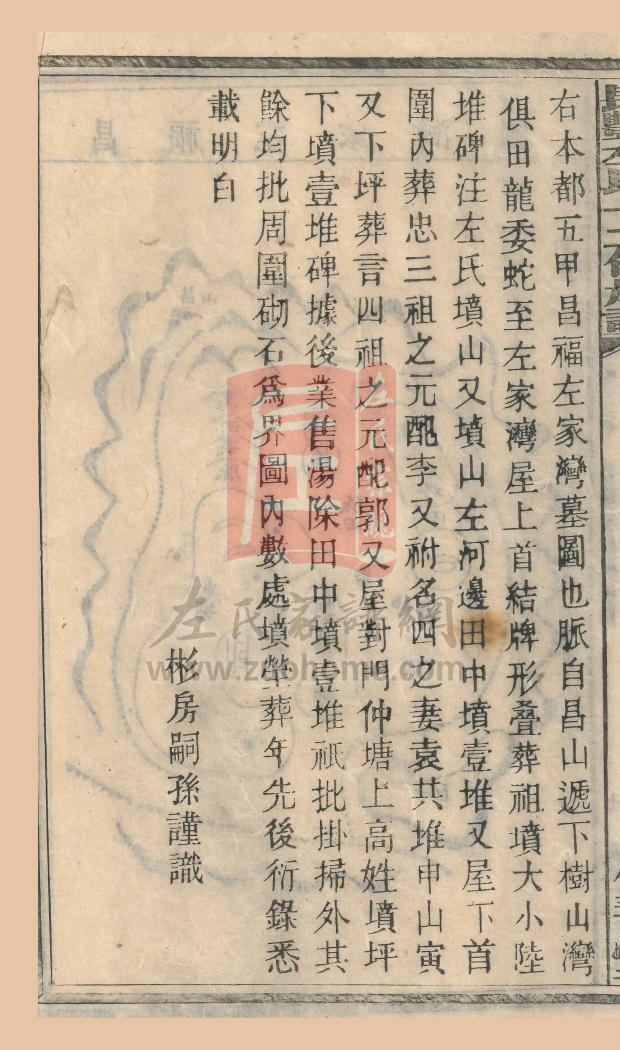 右本都五甲昌福左家灣墓圖也脈自昌山遞下樹山灣
俱田龍委蛇至左家灣屋上首結牌形叠葬祖墳大小陸
堆碑注左氏墳山又墳山左河邊田中墳壹堆又屋下首
圍內葬忠三祖之元配李又祔名四之妻袁共堆申山寅
又下坪葬言四祖之元配郭又屋對門仲塘上高姓墳坪
下墳壹堆碑據後業售湯除田中墳壹堆祇批掛掃外其
餘均批周圍砌石爲界圖內數處墳塋葬年先後衍錄悉
載明白
彬房嗣孫謹識
左氏家譜網
www.zuohome.com